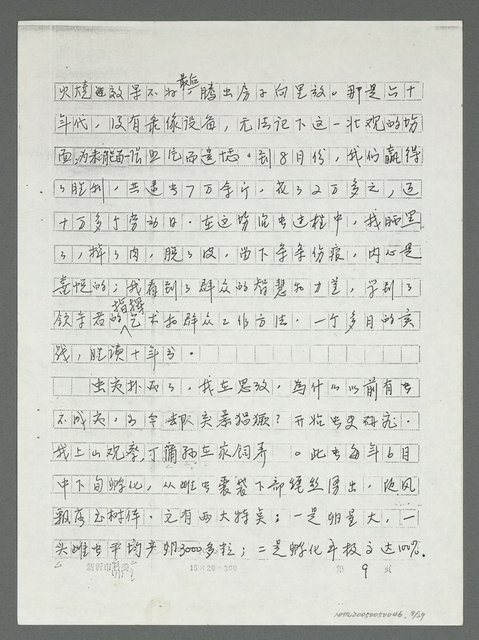 火烧效果不好,最后腾出房子向里放。那是六十
年代,没有录像设备,无法记下这一壮观的场
面,为未能面世而遗憾。到8月份,我们赢得
了胜利,共逮虫7万余斤,花了2万多元,近
十万多个劳动日。在这前后过程中,我晒黑
了,掉了肉,脱了皮,留下条条伤痕,内心是
喜悦的;我看到了群众的智慧和才差,学到了
领导者的指挥艺术和群众工作方法。一个多月的实
践,胜读十年书。
虫灾扑灭了,我在思攷,为什么以前有虫
不成灾,而今害虫猖獗?开始虫史研究。
我上山观察了捕捉在家饲养。此虫每年6月
中下旬孵化,从雌虫囊袋下部缘丝涌出,随风
飘落至树体。它有两大特点:一是卵量大,一
头雌虫平均产卵3000多粒;二是孵化率极高达100%。
15×20=300
第 9 页
NMTL20050050046 9/29